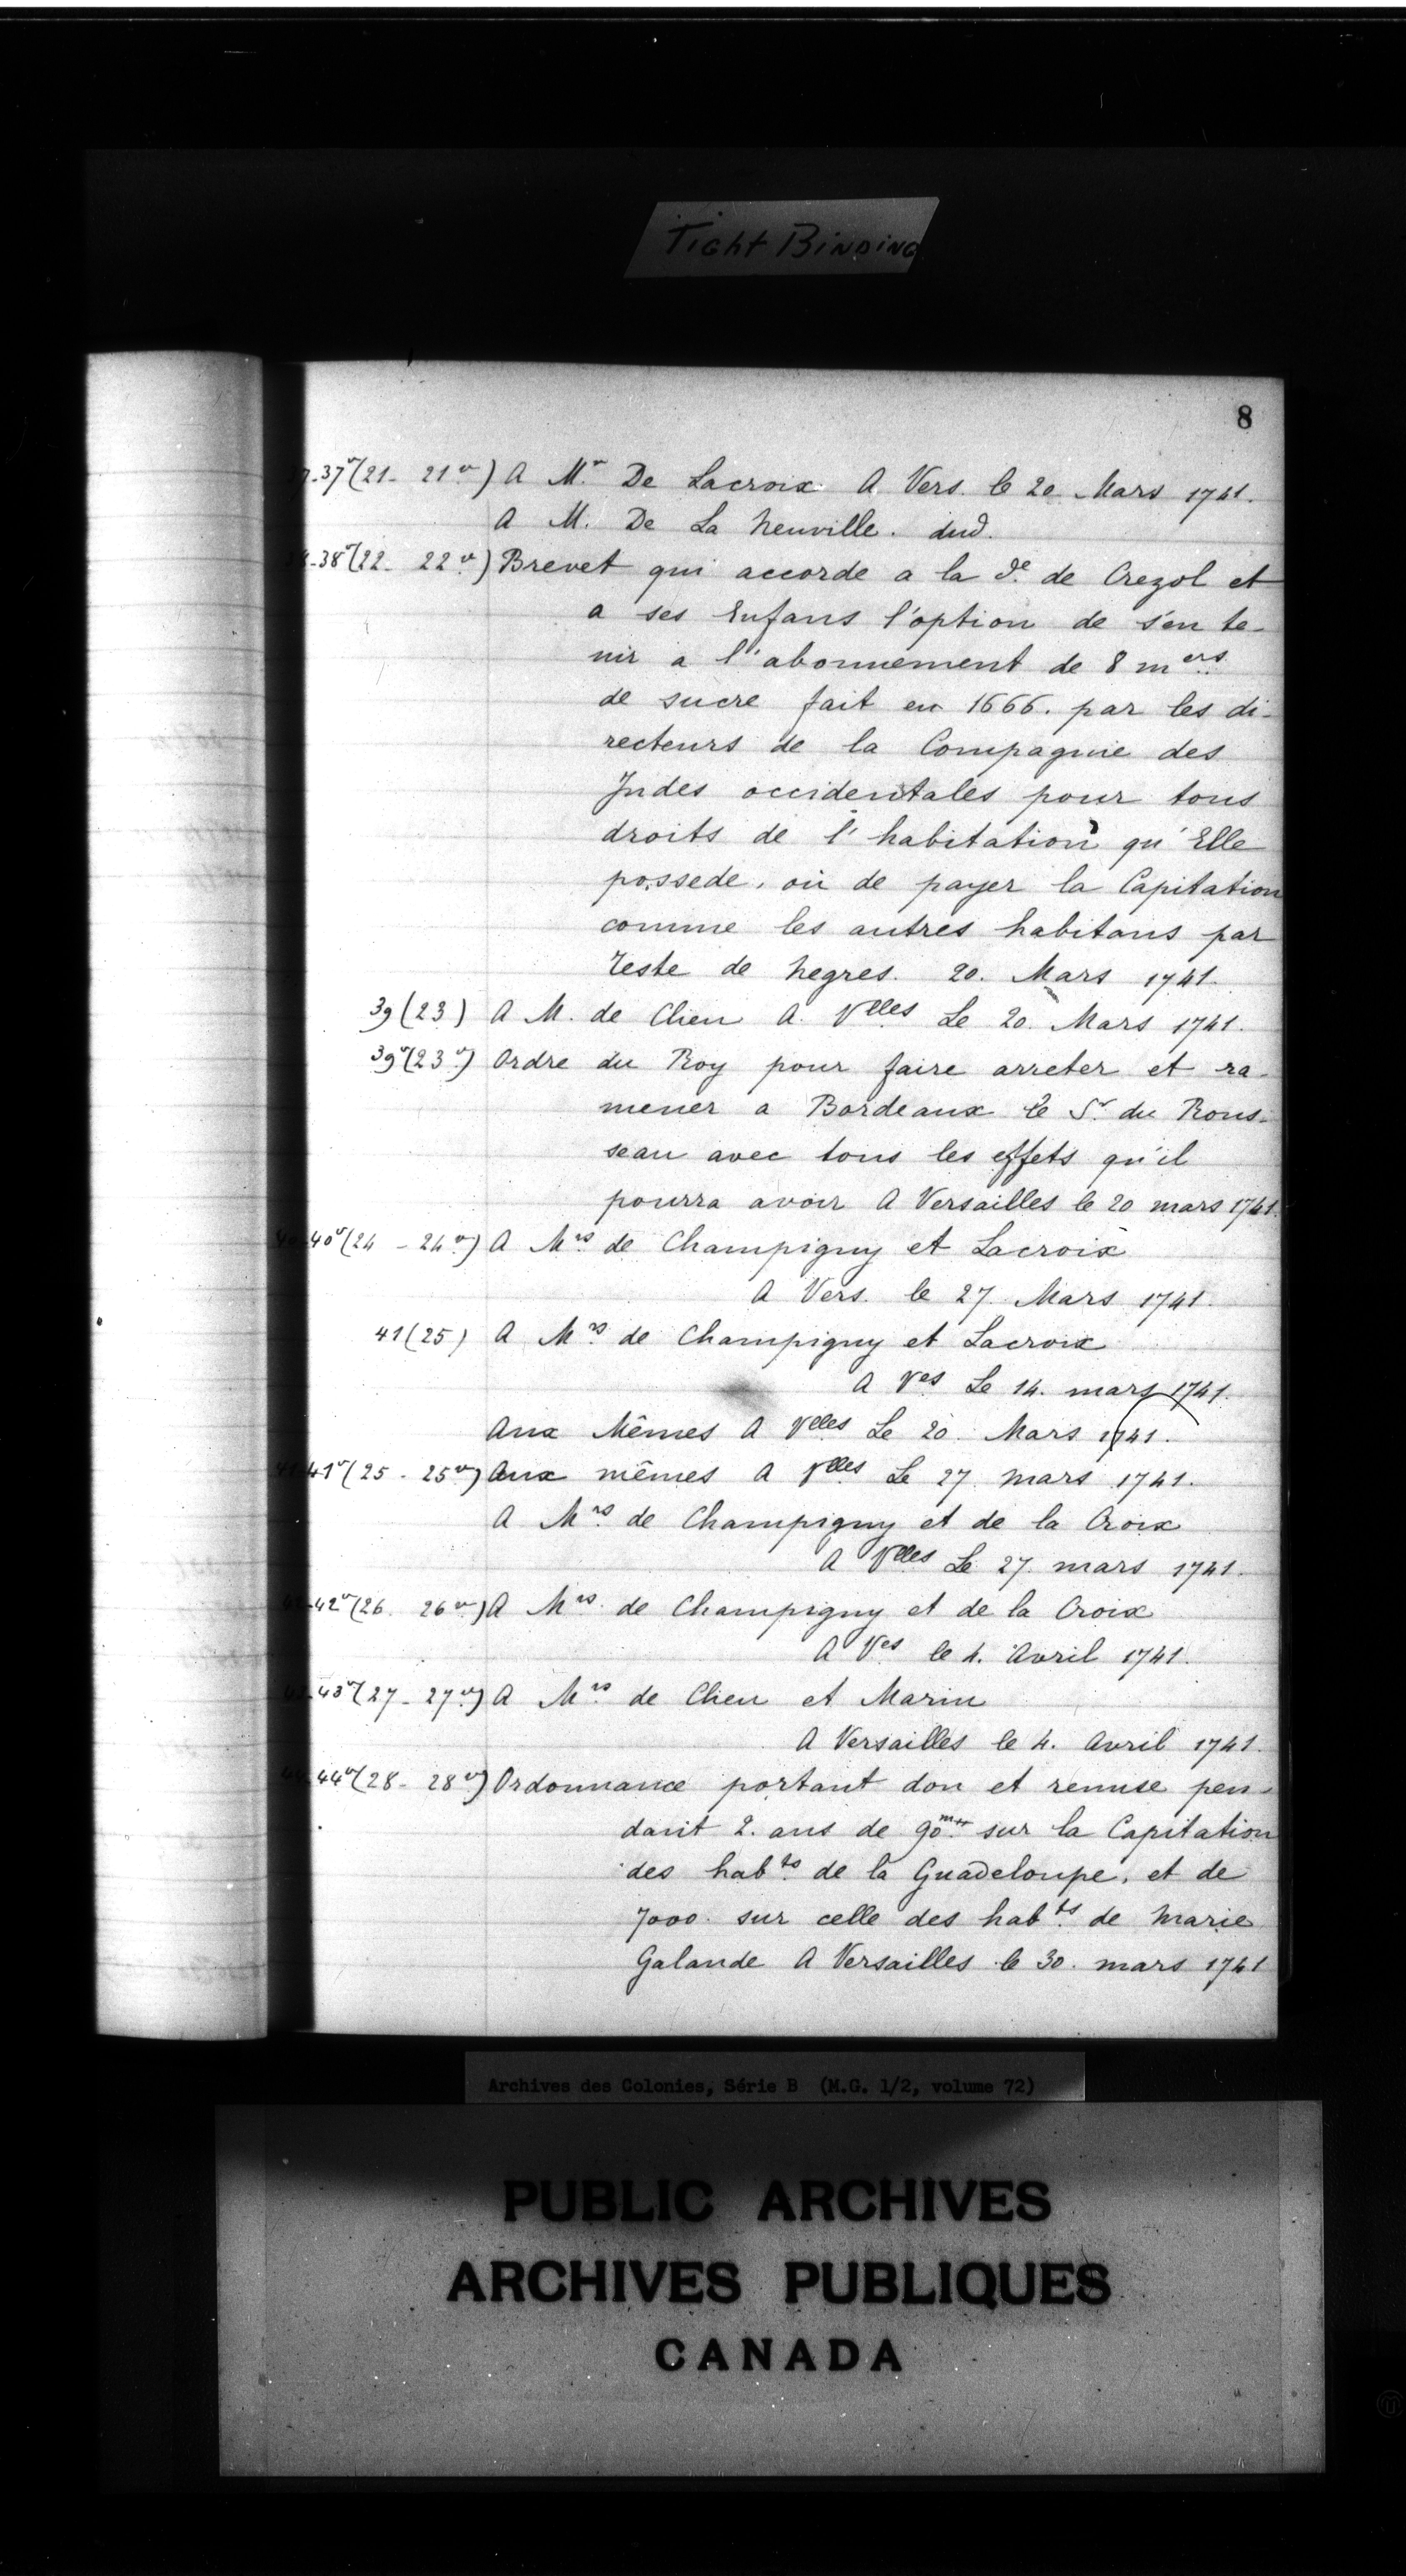 Tight Binding
8
37-37v (21 - 21v) A Mr De Lacroix A Vers. le 20 Mars 1741.
A M. De La Neuville. dud.
38-38v (22 - 22v) Brevet qui accorde a la de. de Crezol et
a ses Enfans l'option de s'en te-
nir a l'abonnement de 8 mers
de sucre fait en 1666. par les di-
recteurs de la Compagnie des
Indes occidentales pour tous
droits de l'habitation qu'Elle
possede, où de payer la Capitation
comme les autres habitans par
teste de negres. 20. Mars 1741.
39 (23) A M. de Clieu A Velles Le 20. Mars 1741.
39v (23v) Ordre du Roy pour faire arreter et ra-
mener a Bordeaux le Sr. du Rous-
seau avec tous les effets qu'il
pourra avoir A Versailles le 20 mars 1741.
40-40v (24 - 24v) A Mrs de Champigny et Lacroix
A Vers. le 27. Mars 1741.
41 (25) A Mrs de Champigny et Lacroix
A Ves Le 14. mars 1741.
Aux Mêmes A Velles Le 20. Mars 1741.
41-41v (25 - 25v) Aux mêmes A Velles Le 27. mars 1741.
A Mrs de Champigny et de la Croix
A Velles Le 27. mars 1741.
42-42v (26. 26v) A Mrs de Champigny et de la Croix
A Ves le 4. Avril 1741.
43-43v (27 - 27v) A Mrs de Clieu et Marin
A Versailles le 4. Avril 1741.
44-44v (28 - 28v) Ordonnance portant don et remise pen-
dant 2. ans de 90m# sur la Capitation
des habts de la Guadeloupe, et de
7000. sur celle des habts de Marie
Galande A Versailles le 30. mars 1741
Archives des Colonies, Série B (M.G. 1/2, volume 72)
PUBLIC ARCHIVES
ARCHIVES PUBLIQUES
CANADA